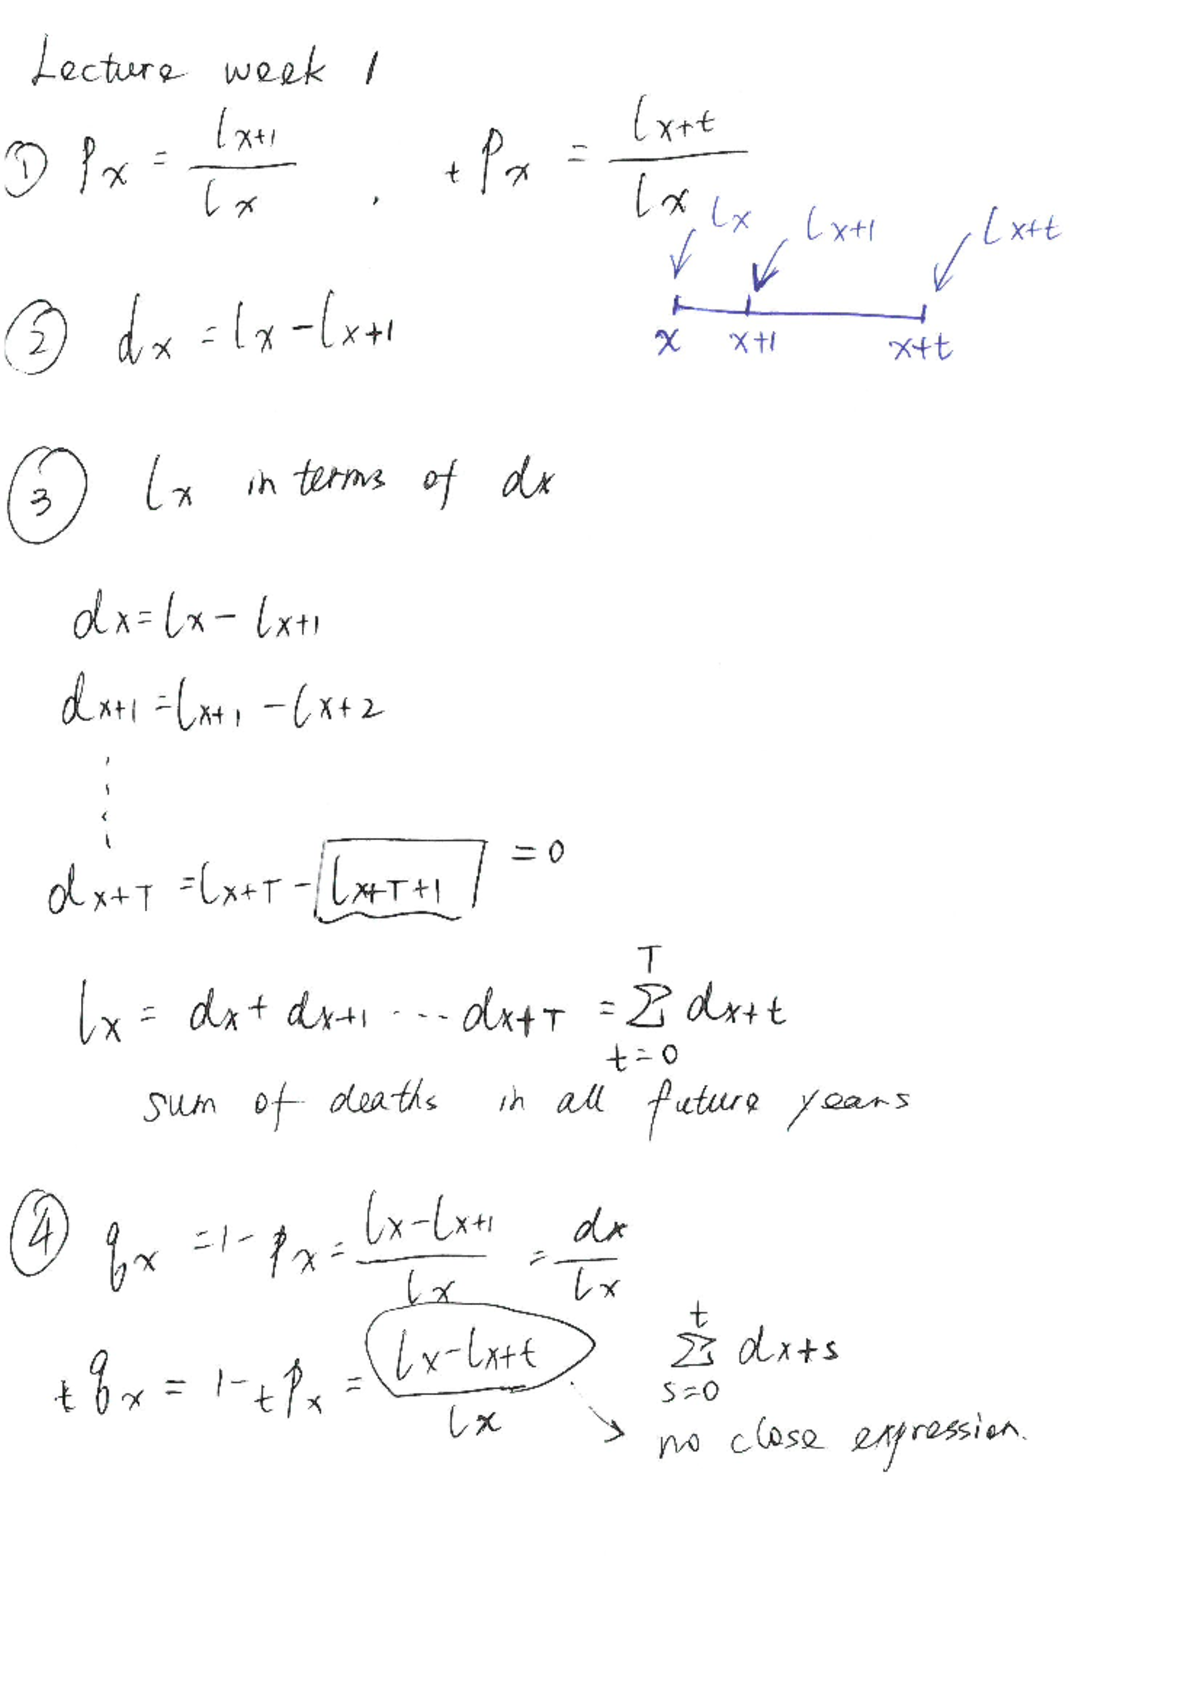 Lecture week 1
① p_x = l_{x+1} / l_x , _tp_x = l_{x+t} / l_x
l_x l_{x+1} l_{x+t}
② d_x = l_x - l_{x+1}
x x+1 x+t
③ l_x in terms of d_x
d_x = l_x - l_{x+1}
d_{x+1} = l_{x+1} - l_{x+2}
⋮
d_{x+T} = l_{x+T} - l_{x+T+1} = 0
l_x = d_x + d_{x+1} ... d_{x+T} = Σ_{t=0}^{T} d_{x+t}
sum of deaths in all future years
④ q_x = 1 - p_x = (l_x - l_{x+1}) / l_x = d_x / l_x
_tq_x = 1 - _tp_x = (l_x - l_{x+t}) / l_x Σ_{s=0}^{t} d_{x+s}
no close expression.